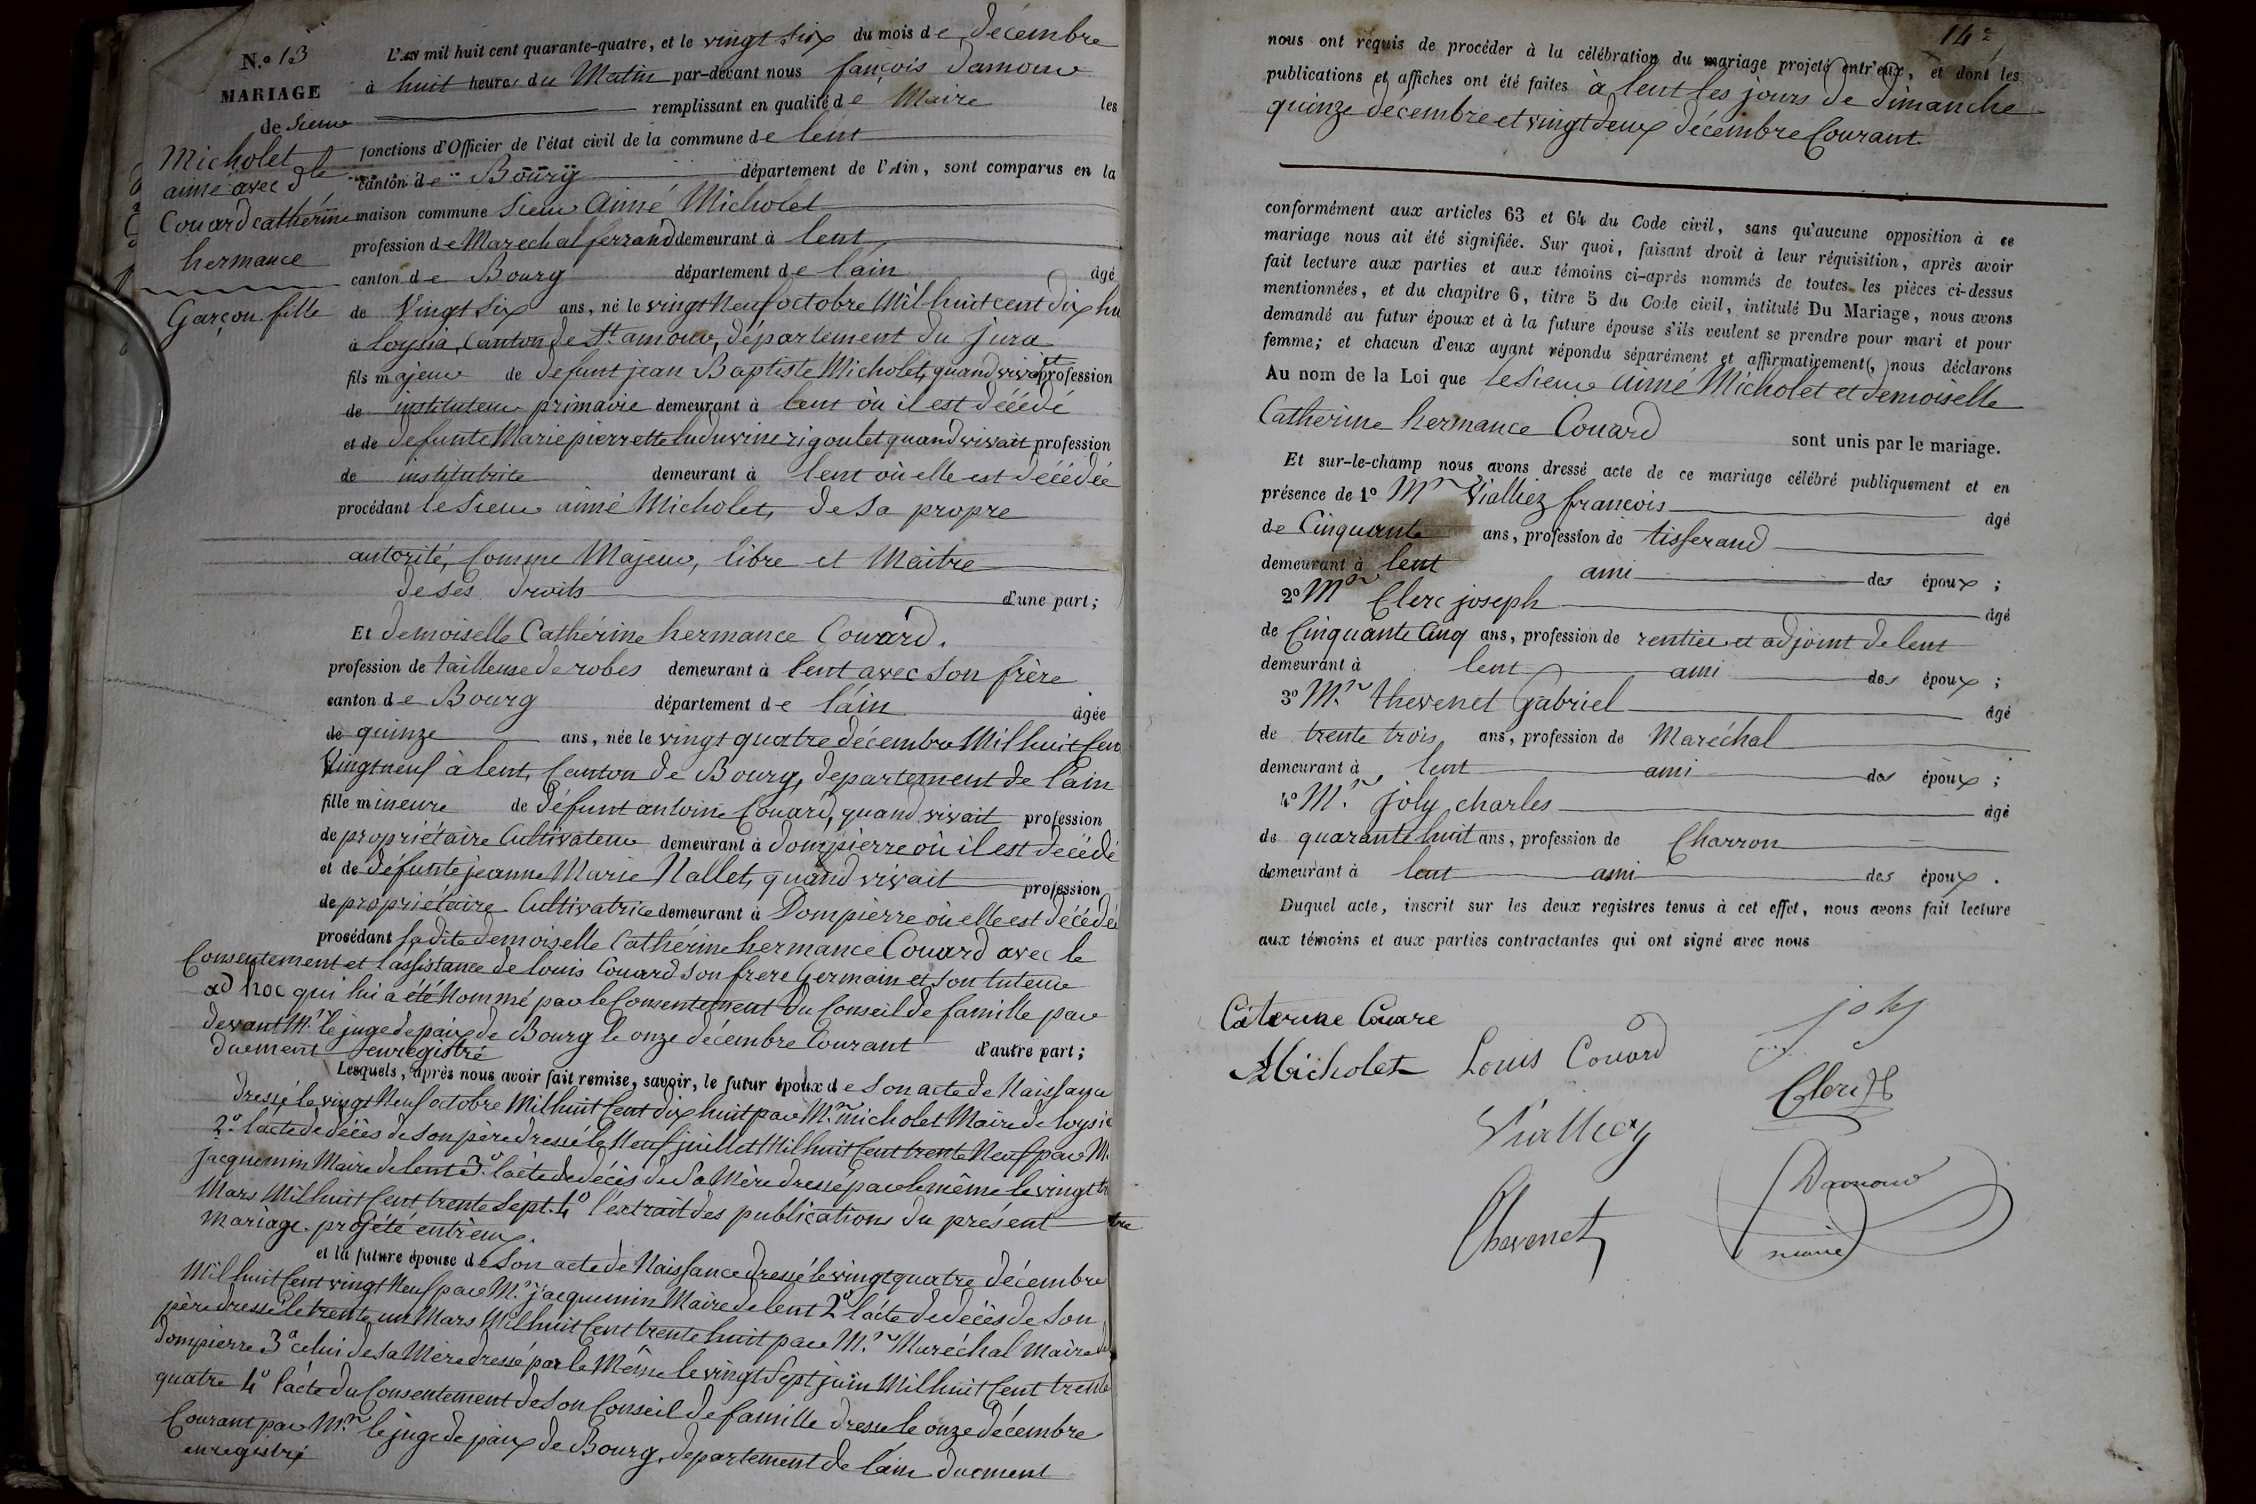 N.o 13
MARIAGE
de sieur
Micholet
aimé avec dlle
Couard cathérine
hermance
Garçon fille
L'an mil huit cent quarante-quatre, et le vingt six du mois de décembre
à huit heures du Matin par-devant nous françois Damour
remplissant en qualité de Maire les
fonctions d'Officier de l'état civil de la commune de lent
canton de Bourg département de l'Ain, sont comparus en la
maison commune sieur Aimé Micholet
profession de Marechal ferrand demeurant à lent
canton de Bourg département de l'ain âgé
de Vingt six ans, né le vingt Neuf octobre Mil huit cent dix hu
à loysia, Canton de St amour, département du jura
fils majeur de defunt jean Baptiste Micholet, quand vivait profession
de instituteur primaire demeurant à lent où il est décédé
et de defunte Marie pierrette luduvine rigoulet quand vivait profession
de institutrice demeurant à lent où elle est décédée
procédant le sieur aimé Micholet, de sa propre
autorité, Comme Majeur, libre et Maitre
de ses droits d'une part;
Et demoiselle Cathérine hermance Couard.
profession de tailleuse de robes demeurant à lent avec son frère
canton de Bourg département de l'ain âgée
de quinze ans, née le vingt quatre décembre Mil huit Cen
Vingt neuf à lent, Canton de Bourg, departement de l'ain
fille mineure de défunt antoine Couard, quand vivait profession
de propriétaire Cultivateur demeurant à dompierre où il est décédé
et de défunte jeanne Marie Nallet, quand vivait profession
de propriétaire Cultivatrice demeurant à Dompierre où elle est décédée
procédant ladite demoiselle Cathérine hermance Couard avec le
Consentement et l'assistance de louis Couard son frere Germain et son tuteur
ad hoc qui lui a été Nommé par le Consentement du Conseil de famille par
devant Mr le juge de paix de Bourg le onze décembre Courant
duement enregistré d'autre part;
Lesquels, après nous avoir fait remise, savoir, le futur époux de son acte de Naissance
dressé le vingt Neuf octobre Mil huit Cent dix huit par Mr micholet Maire de loysia
2o l'acte de décès de son père dressé le Neuf juillet Mil huit Cent trente Neuf par M.
jacquemin Maire de lent 3o l'acte de décès de sa Mère dressé par le même le vingt
Mars Mil huit Cent trente sept. 4o l'extrait des publications du présent
Mariage projété entr'eux.
et la future épouse de son acte de Naissance dressé le vingt quatre décembre
Mil huit Cent vingt Neuf par Mr jacquemin Maire de lent 2o l'acte de décès de son
père dressé le trente un Mars Mil huit Cent trente huit par Mr Maréchal Maire de
dompierre 3o celui de sa Mère dressé par le Même le vingt sept juin Mil huit Cent trente
quatre 4o l'acte du Consentement de son Conseil de famille dressé le onze décembre
Courant par Mr le juge de paix de Bourg, departement de l'ain duement
enregistré
14
nous ont requis de procéder à la célébration du mariage projeté entr'eux, et dont les
publications et affiches ont été faites à lent les jours de dimanche
quinze decembre et vingt deux décembre Courant.
conformément aux articles 63 et 64 du Code civil, sans qu'aucune opposition à ce
mariage nous ait été signifiée. Sur quoi, faisant droit à leur réquisition, après avoir
fait lecture aux parties et aux témoins ci-après nommés de toutes les pièces ci-dessus
mentionnées, et du chapitre 6, titre 5 du Code civil, intitulé Du Mariage, nous avons
demandé au futur époux et à la future épouse s'ils veulent se prendre pour mari et pour
femme; et chacun d'eux ayant répondu séparément et affirmativement, nous déclarons
Au nom de la Loi que le sieur Aimé Micholet et demoiselle
Catherine hermance Couard sont unis par le mariage.
Et sur-le-champ nous avons dressé acte de ce mariage célébré publiquement et en
présence de 1o Mr Vialliez françois âgé
de Cinquante ans, profession de tisserand
demeurant à lent ami des époux;
2o Mr Clerc joseph âgé
de Cinquante Cinq ans, profession de rentier et adjoint de lent
demeurant à lent ami des époux;
3o Mr. thevenet Gabriel âgé
de trente trois ans, profession de Maréchal
demeurant à lent ami des époux;
4o Mr. joly charles âgé
de quarante huit ans, profession de Charron
demeurant à lent ami des époux.
Duquel acte, inscrit sur les deux registres tenus à cet effet, nous avons fait lecture
aux témoins et aux parties contractantes qui ont signé avec nous
Caterine Couare
joly
Micholet Louis Couard
Clerc
Vialliez
Damour
maire
Thevenet